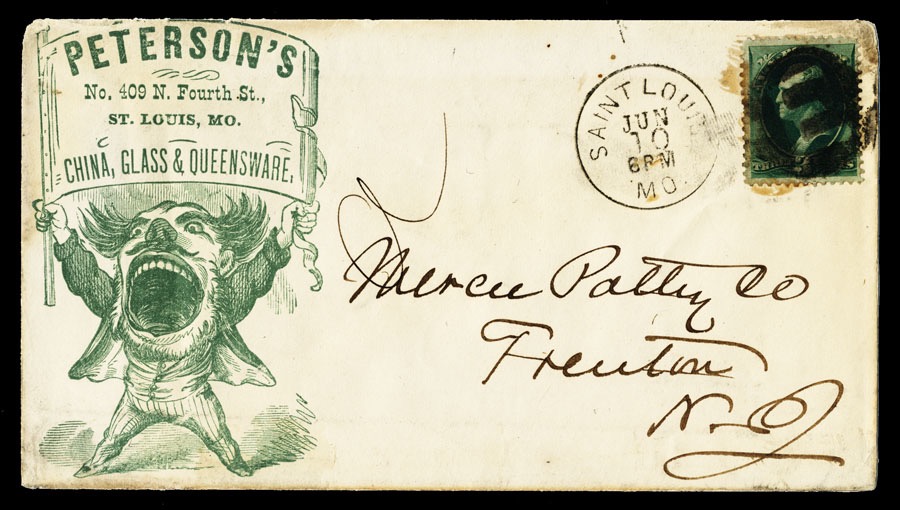 PETERSON'S
No. 409 N. Fourth St.,
ST. LOUIS, MO.
CHINA, GLASS & QUEENSWARE,
SAINT LOUIS
JUN
10
6PM
MO.
Mercer Pottery Co
Trenton
N. J